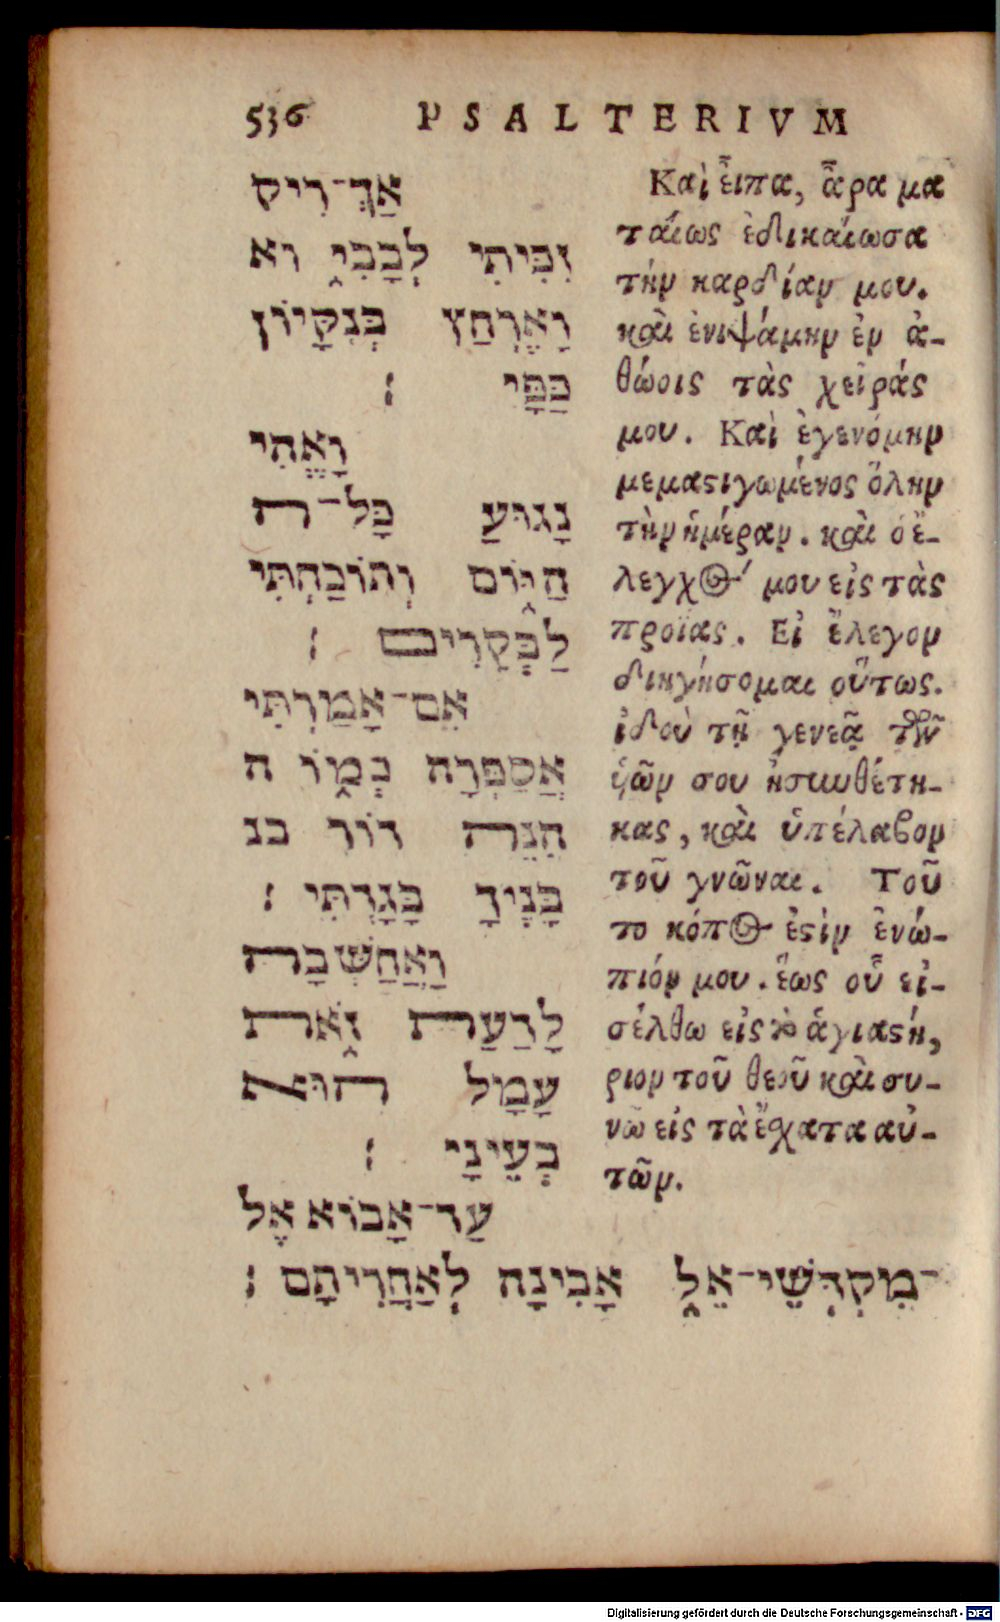 536 PSALTERIVM
אַךְ־רִיק
זִכִּיתִי לְבָבִי וא
וָאֶרְחַץ בְּנִקָּיוֹן
כַּפָּי ׃
וָאֱהִי
נָגוּעַ כָּל־ה
הַיּוֹם וְתוֹכַחְתִּי
לַבְּקָרִים ׃
אִם־אָמַרְתִּי
אֲסַפְּרָה כְמוֹ ה
הִנֵּה דוֹר בנ
בָּנֶיךָ בָּגָדְתִּי ׃
וַאֲחַשְּׁבָה
לָדַעַת זֹאת
עָמָל הוּא
בְעֵינָי ׃
עַד־אָבוֹא אֶל
־מִקְדְּשֵׁי־אֵל אָבִינָה לְאַחֲרִיתָם ׃
Καὶ εἶπα, ἆρα μα
ταίως ἐδικαίωσα
τὴν καρδίαν μου.
καὶ ἐνιψάμην ἐν ἀ-
θώοις τὰς χεῖράς
μου. Καὶ ἐγενόμην
μεμαςιγωμένος ὅλην
τὴν ἡμέραν. καὶ ὁ ἔ-
λεγχος μου εἰς τὰς
πρωΐας. Εἰ ἔλεγον
διηγήσομαι οὕτως.
ἰδοὺ τῇ γενεᾷ τῶν
ὑῶν σου ἠσυνθέτη-
κας, καὶ ὑπέλαβον
τοῦ γνῶναι. Τοῦ
το κόπος ἐςὶν ἐνώ-
πιόν μου. ἕως οὗ εἰ-
σέλθω εἰς τὸ ἁγιαςή,
ριον τοῦ θεοῦ καὶ συ-
νῶ εἰς τὰ ἔχατα αὐ-
τῶν.
Digitalisierung gefördert durch die Deutsche Forschungsgemeinschaft - DFG